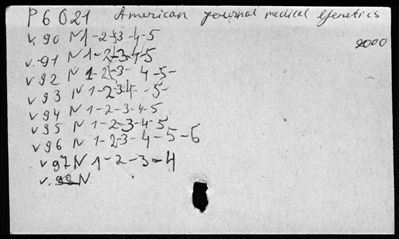 P6021 American journal medical Genetics
2000
v. 90 N 1-2-3-4-5
v. 91 N 1-2-3-4-5
v 92 N 1-2-3-4-5-
v 93 N 1-2-3-4-5-
v 94 N 1-2-3-4-5
v 95 N 1-2-3-4-5
v 96 N 1-2-3-4-5-6
v 97 N 1-2-3-4
v. N